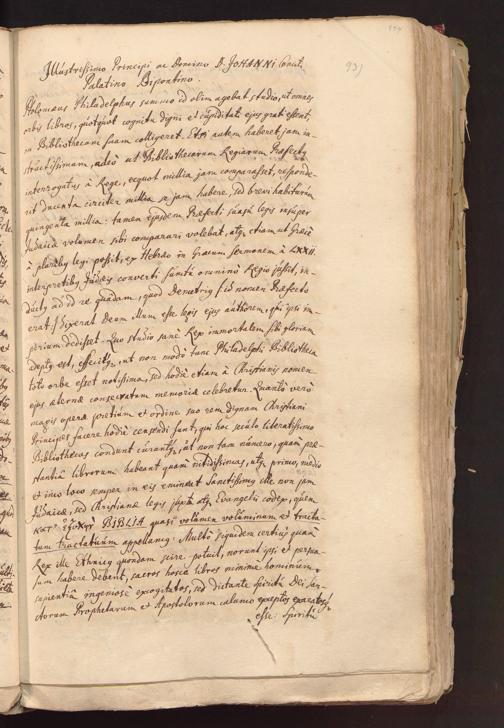 93)
Illustrissimo Principi ac Domino D. JOHANNI Comiti
Palatino Bipontino.
Ptolomæus Philadelphus summo id olim agebat studio, ut omnes
orbis libros, quotquot cognitu digni et cupiditati ejus grati essent,
in Bibliothecam suam colligeret. Etsi autem haberet jam in-
structissimam, adeò ut Bibliothecarum Regiarum Præfectus
interrogatus à Rege, ecquot millia jam comparasset, responde-
rit ducenta circiter millia se jam habere, sed brevi habiturum
quingenta millia: tamen ejusdem Præfecti suasu legis insuper
Judaicæ volumen sibi comparari volebat, atq etiam ut Græcè
à pluribus legi possit, ex Hebræo in Græcum sermonem à LXXII.
interpretibus Judæis converti sumtu omninò Regio jussit, in-
ductus ad id re quadam, quod Demetrius (id nomen Præfecto
erat) dixerat Deum illum esse legis ejus authorem, qui ipsi im-
perium dedisset. Quo studio sanè Rex immortalem sibi gloriam
adeptus est, effecitq, ut non modò tunc Philadelphi Bibliotheca
toto orbe esset notissima, sed hodiè etiam à Christianis nomen
ejus æternæ consecratum memoriæ celebretur. Quantò verò
magis operæ pretium et ordine suo rem dignam Christiani
Principes facere hodiè censendi sunt, qui hoc sæculo literatissimo
Bibliothecas condunt curantq, ut non tam numero, quam præ-
stantiâ librorum habeant quam nitidissimas, utq primo, medio
et imo loco semper in eis emineat Sanctissimus ille non jam
Judaicæ, sed Christianæ legis juxta atq Evangelii codex, quem
κατ' ἐξοχὴν BIBLIA quasi volumen voluminum et tracta-
tum tractatuum appellamus. Multò siquidem certius quam
Rex ille Ethnicus quondam scire potuit, norunt ipsi et persua-
sum habere debent, sacros hosce libros minimè hominum
sapientiâ ingeniosè excogitatos, sed dictante Spiritu Dei San-
ctorum Prophetarum et Apostolorum calamo exceptos exaratosq
esse. Spiritu